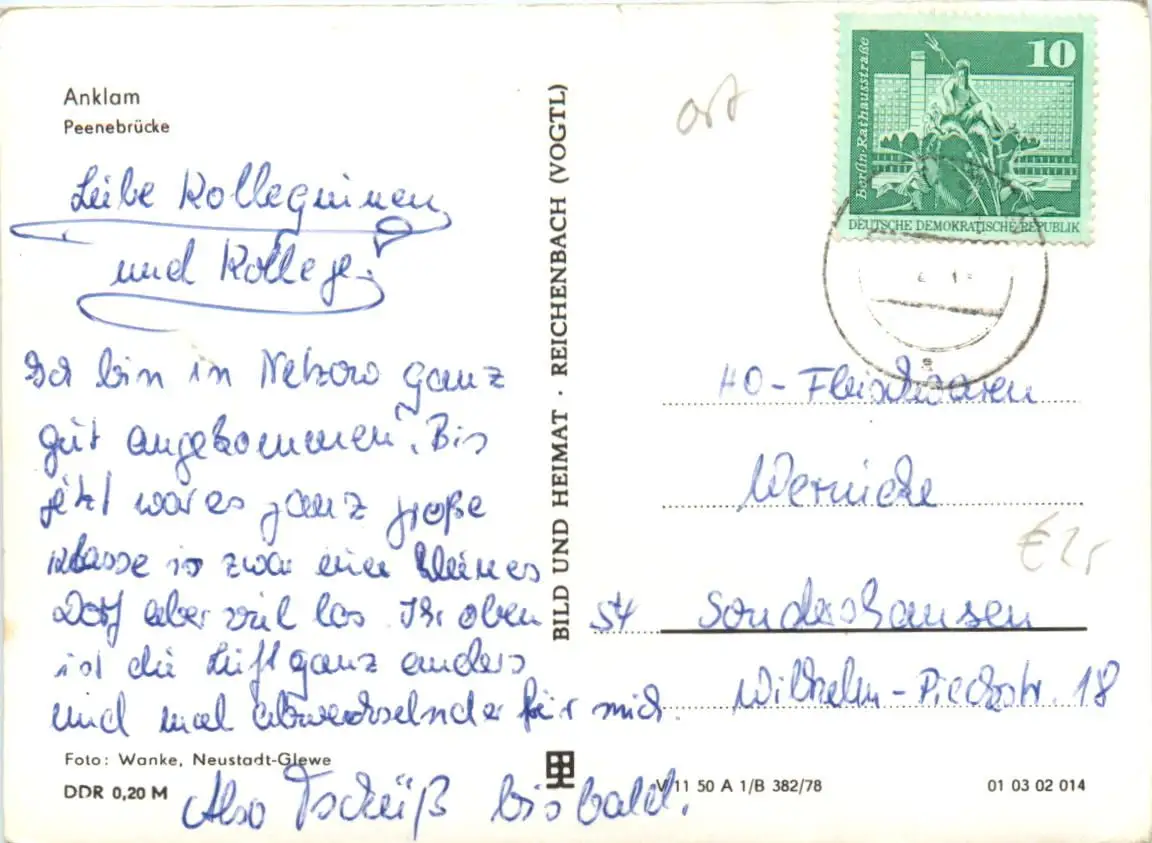 Anklam
Peenebrücke
Leibe Kolleginnen
und Kollege.
Ich bin in Netzow ganz
gut angekommen. Bis
jetzt war es ganz große
Klasse is zwar ein kleines
Dorf aber viel los. Ihr oben
ist die Luft ganz anders
und mal abwechselnder für mich.
Also Tschüß bis bald.
Foto: Wanke, Neustadt-Glewe
DDR 0,20 M
BILD UND HEIMAT · REICHENBACH (VOGTL)
V 11 50 A 1/B 382/78
01 03 02 014
ort
10
Berlin·Rathausstraße
DEUTSCHE DEMOKRATISCHE REPUBLIK
HO-Fleischwaren
Wernicke
54 Sondershausen
Wilhelm-Pieckstr. 18